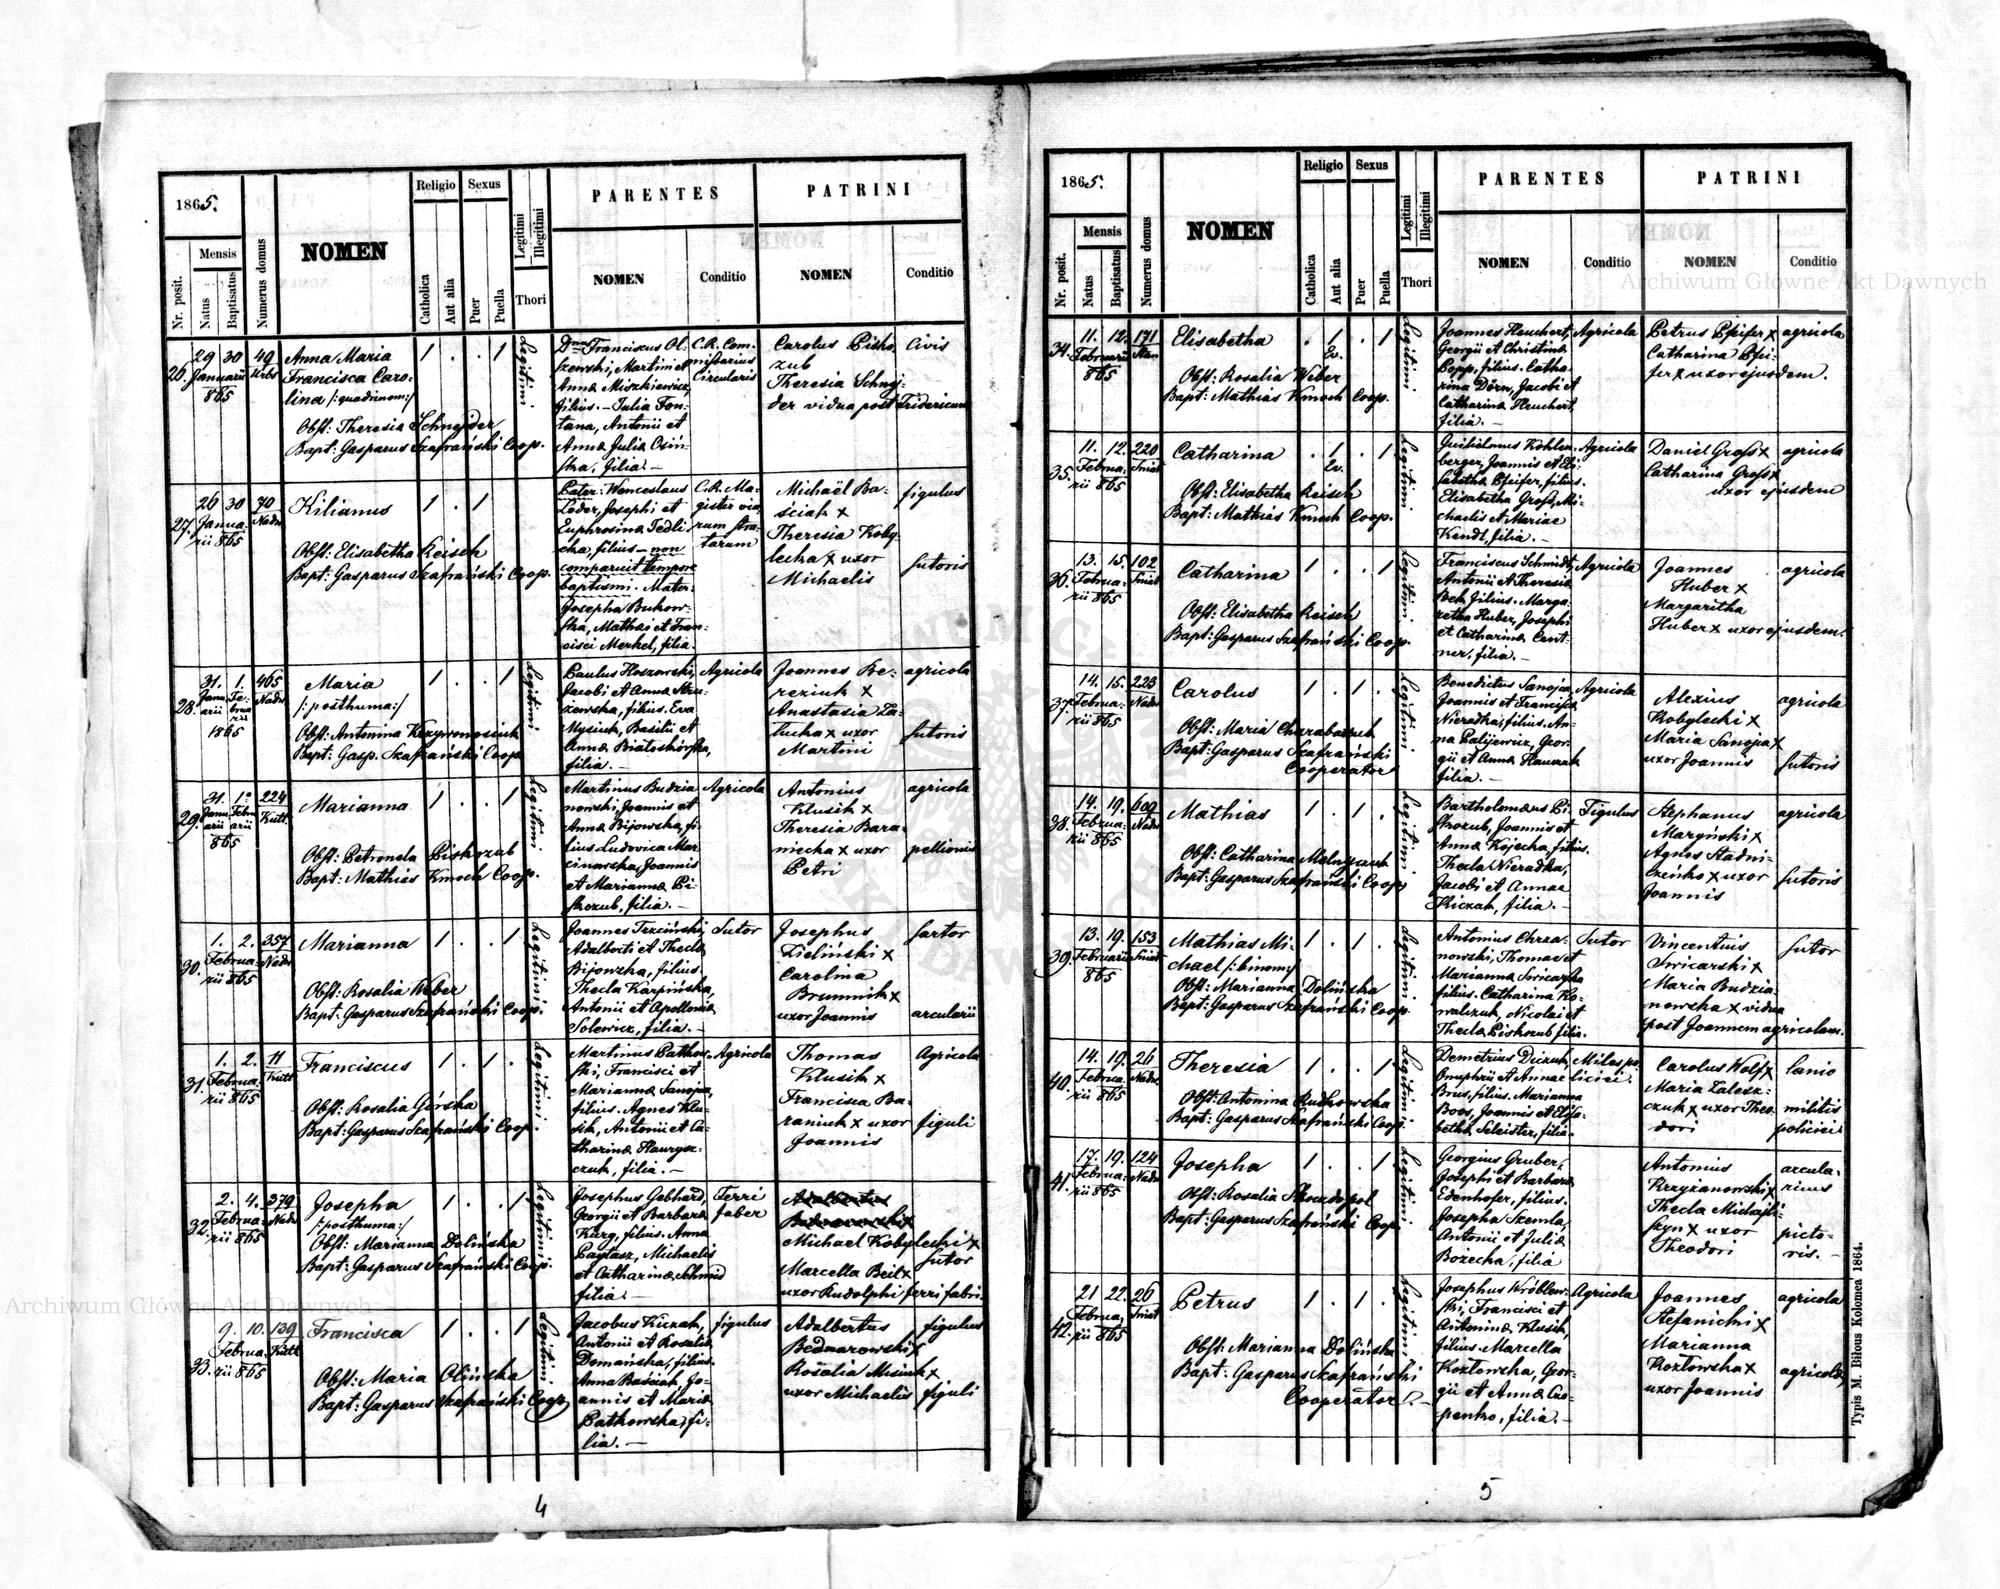 1865.
Religio
Sexus
Legitimi
Illegitimi
PARENTES
PATRINI
Mensis
Numerus domus
NOMEN
NOMEN
Conditio
NOMEN
Conditio
Nr. posit.
Natus
Baptisatus
Catholica
Aut alia
Puer
Puella
Thori
26.
29 30
Januarii
865
49
Urbs
Anna Maria
Francisca Caro-
lina /:quadrinom:/
Obst: Theresia Schneider
Bapt: Gasparus Szafrański Coop.
1 . . 1
Legitimi.
Dnus Franciscus Ol-
szewski, Martini et
Anna Miszkiewicz,
filius. – Julia Fon-
tana, Antonii et
Anna Julia Osiń-
ska, filia. –
C.R. Com-
missarius
Circularis
Carolus Pisko-
zub
Theresia Schnei-
der vidua post Fridericum
Civis
27.
26 30
Janua-
rii 865
70
Nadw
Kilianus
Obst: Elisabetha Reisch
Bapt: Gasparus Szafrański Coop.
1 . 1
Pater: Wenceslaus
Leder, Josephi et
Euphrosina Tedli-
cka, filius – non
comparuit tempore
baptismi. Mater:
Josepha Bukow-
ska, Mathai et Fran-
cisci Merkel, filia.
C.R. Ma-
gister via-
rum stra-
tarum
Michaël Ba-
ściak x
Theresia Koby-
lecka x uxor
Michaelis
figulus
sutoris
28.
31. 1.
Janu- Fe-
arii brua-
rii
1865
465
Nadw
Maria
/:posthuma:/
Obst: Antonina Krzywonosiuk
Bapt: Gasp. Szafrański Coop
1 . . 1
Legitimi.
Paulus Hoszowski,
Jacobi et Anna
filius. Eva
Mysiuk, Basilii et
Anna Białoskórska,
filia. –
Agricola
Joannes Be-
reziuk x
Anastasia La-
tucha x uxor
Martini
agricola
sutoris
29.
31. 1.
Janu- Febru-
arii arii
865
224
Kutt.
Marianna
Obst: Petronela Piskozub
Bapt: Mathias Kmoch Coop.
1 . . 1
Legitimi
Martinus Budzia-
nowski, Joannis et
Anna Bijowska, fi-
lius Ludovica Mar-
cinowska, Joannis
et Marianna Pi-
skozub, filia. –
Agricola
Antonius
Klusik x
Theresia Bara-
niecka x uxor
Petri
agricola
pellionis
30.
1. 2.
Februa-
rii 865
357
Nadw
Marianna
Obst: Rosalia Weber
Bapt: Gasparus Szafrański Coop.
1 . . 1
Legitimi.
Joannes Trzciński,
Adalberti et Thecla
Bijowska, filius
Thecla Karpińska,
Antonii et Apollonia
Solewicz, filia. –
Sutor
Josephus
Zieliński x
Carolina
Brumnik x
uxor Joannis
Sartor
arcularii
31.
1. 2.
Februa-
rii 865
11
Kutt
Franciscus
Obst: Rosalia Górska
Bapt: Gasparus Szafrański Coop.
1 . 1 .
Legitimi.
Martinus Patkow-
ski, Francisci et
Marianna Sanoja,
filius. Agnes Klu-
sik, Antonii et Ca-
tharina Hawrysz-
czuk, filia. –
Agricola
Thomas
Klusik x
Francisca Ba-
raniuk x uxor
Joannis
Agricola
figuli
32.
2. 4.
Februa-
rii 865
379
Nadw
Josepha
/:posthuma:/
Obst: Marianna Dolińska
Bapt: Gasparus Szafrański Coop.
1 . . 1
Legitimi.
Josephus Gebhard,
Georgii et Barbara
Kurg, filius. Anna
Paytasz, Michaelis
et Catharina Schmid
filia. –
Ferri
faber
Adalbertus
Bednarowski x
Michael Kobylecki x
Marcella Beil x
uxor Rudolphi ferri fabri.
Sutor
33.
9. 10.
Februa-
rii 865
139
Kutt
Francisca
Obst: Maria Olińska
Bapt: Gasparus Szafrański Coop.
1 . . 1
Legitimi.
Jacobus Kiczak,
Antonii et Rosalia
Domańska, filius.
Anna Baściak, Jo-
annis et Maria
Patkowska, fi-
lia. –
figulus
Adalbertus
Bednarowski x
Rosalia Misiuk x
uxor Michaelis
figulus
figuli
4
1865.
Religio
Sexus
Legitimi
Illegitimi
PARENTES
PATRINI
Mensis
Numerus domus
NOMEN
NOMEN
Conditio
NOMEN
Conditio
Nr. posit.
Natus
Baptisatus
Catholica
Aut alia
Puer
Puella
Thori
34.
11. 12.
Februarii
865
171
Elisabetha
Obst: Rosalia Weber
Bapt: Mathias Kmoch Coop.
. 1 . 1
Ev.
Legitimi.
Joannes Heuchert,
Georgii et Christina
Popp, filius. Catha-
rina Dörn, Jacobi et
Catharina Heuchert,
filia. –
Agricola
Petrus Pfeifer x
Catharina Pfei-
fer x uxor ejusdem.
agricola
35.
11. 12.
Februa-
rii 865
220
Sniat
Catharina
Obst: Elisabetha Reisch
Bapt: Mathias Kmoch Coop.
. 1 . 1
Ev.
Legitimi.
Guilielmus Kohlen-
berger, Joannis et Eli-
sabetha Pfeifer, filius.
Elisabetha Gross, Mi-
chaelis et Mariae
Kendl, filia. –
Agricola
Daniel Gross x
Catharina Gross x
uxor ejusdem
agricola
36.
13. 15.
Februa-
rii 865
102
Sniat
Catharina
Obst: Elisabetha Reisch
Bapt: Gasparus Szafrański Coop.
1 . . 1
Legitimi.
Franciscus Schmidt,
Antonii et Theresia
Beck, filius. Marga-
retha Huber, Josephi
et Catharina Cent-
ner, filia. –
Agricola
Joannes
Huber x
Margaritha
Huber x uxor ejusdem.
agricola
37.
14. 15.
Februa-
rii 865
223
Nadw
Carolus
Obst: Maria Charabarzuk
Bapt: Gasparus Szafrański
Cooperator
1 . 1 .
Legitimi
Benedictus Sanoja,
Joannis et Francisca
Nieradka, filius. An-
na Palijewicz, Geor-
gii et Anna Hawrzak
filia. –
Agricola
Alexius
Kobylecki x
Maria Sanoja x
uxor Joannis
agricola
sutoris
38.
14. 19.
Februa-
rii 865
609
Nadw
Mathias
Obst: Catharina Melnyczuk
Bapt: Gasparus Szafrański Coop
1 . 1 .
Legitimi.
Bartholomeus Pi-
skozub, Joannis et
Anna Kojecka, filius.
Thecla Nieradka,
Jacobi et Annae
Kiczak, filia. –
Figulus
Stephanus
Margiński x
Agnes Stadni-
czenko x uxor
Joannis
agricola
sutoris
39.
13. 19.
Februarii
865
153
Sniat
Mathias Mi-
chael /:binom:/
Obst: Marianna Dolińska
Bapt: Gasparus Szafrański Coop.
1 . 1 .
Legitimi.
Antonius Chrza-
nowski, Thomae et
Marianna Swicarska
filius. Catharina Ko-
walczuk, Nicolai et
Thecla Piskozub filia.
Sutor
Vincentius
Swicarski x
Maria Budzia-
nowska x vidua
post Joannem agricolam.
sutor
40.
14. 19.
Februa-
rii 865
26
Nadw.
Theresia
Obst: Antonina Rutkowska
Bapt: Gasparus Szafrański Coop.
1 . . 1
Legitimi.
Demetrius Diczuk,
Onuphrii et Annae
Brus, filius. Marianna
Boos, Joannis et Elisa-
betha Scheister, filia.
Miles po-
liciei.
Carolus Wolf x
Maria Zalesz-
czuk x uxor Theo-
dori
lanio
militis
policiei
41.
17. 19.
Februa-
rii 865
124
Nadw
Josepha
Obst: Rosalia Skoczdopol
Bapt: Gasparus Szafrański Coop.
1 . . 1
Legitimi.
Georgius Gruber,
Josephi et Barbara
Edenhofer, filius.
Josepha Szemla,
Antonii et Julia
Bożecka, filia
Antonius
Krzyżanowski x
Thecla Michajli-
szyn x uxor
Theodori
arcula-
rius
picto-
ris. –
42.
21 22.
Februa-
rii 865
26
Sniat
Petrus
Obst: Marianna Dolińska
Bapt: Gasparus Szafrański
Cooperator. –
1 . 1 .
Legitimi
Josephus Wróblew-
ski, Francisci et
Antonina Klusik,
filius. Marcella
Kozłowska, Geor-
gii et Anna Cza-
penko, filia. –
Agricola
Joannes
Stefanicki x
Marianna
Kozłowska x
uxor Joannis
agricola
agricola
5
Typis M. Bilous Kolomea 1864.
Archiwum Główne Akt Dawnych
Archiwum Główne Akt Dawnych